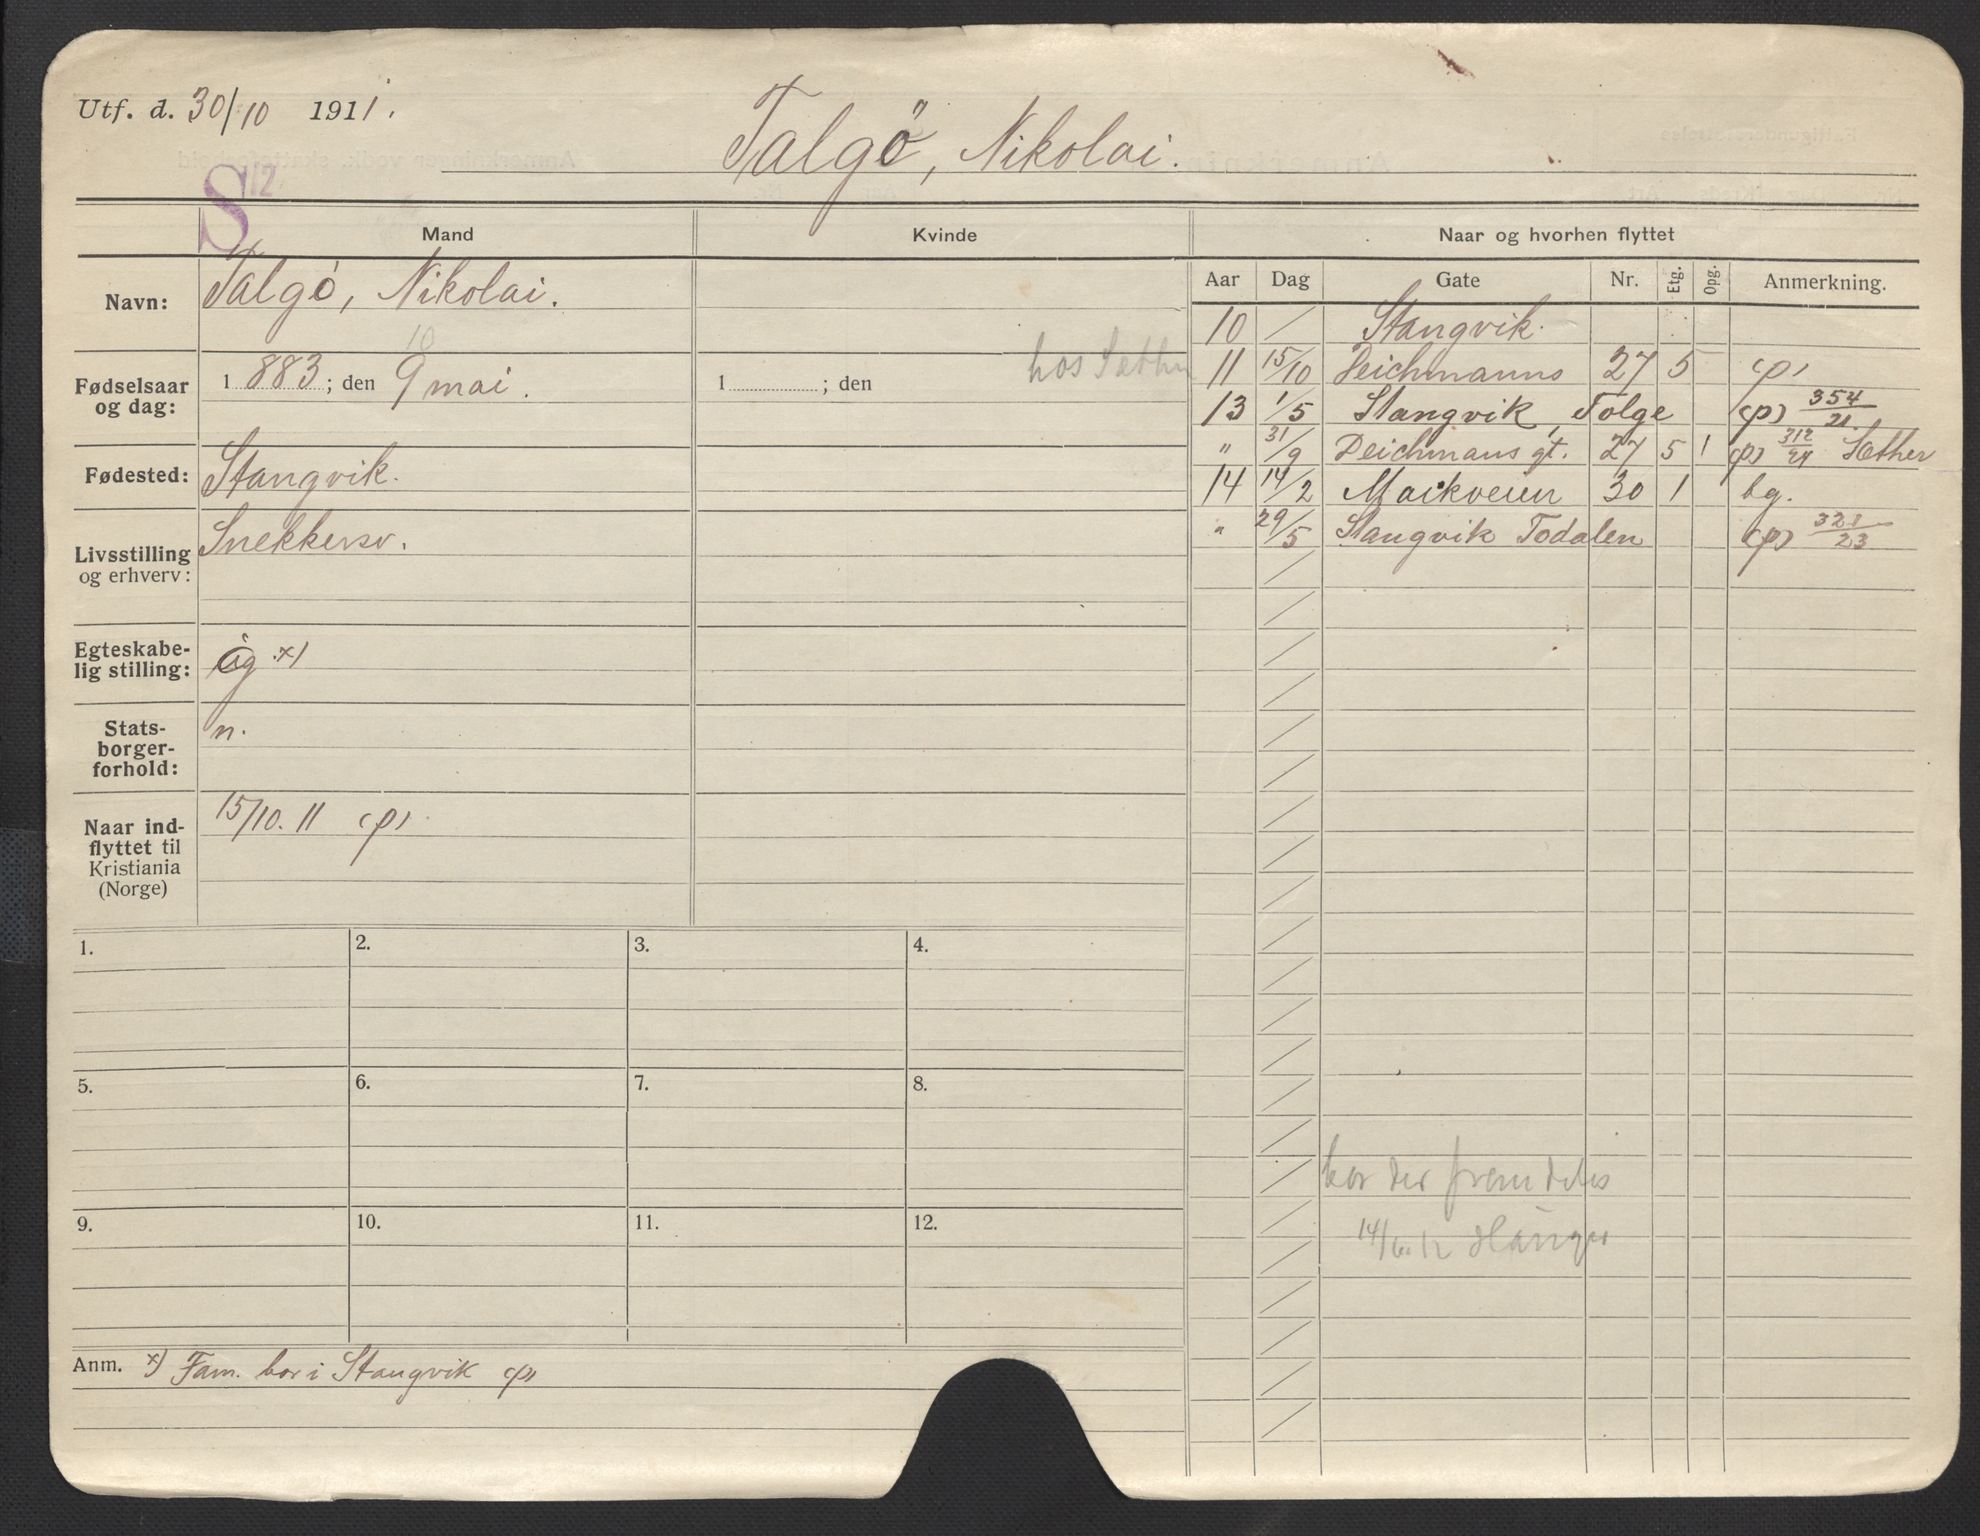 Utf. d. 30/10 1911.
Talgö, Nikolai.
S 12
Mand Kvinde Naar og hvorhen flyttet
Aar Dag Gate Nr. Etg. Opg. Anmerkning.
Navn: Talgö, Nikolai.
10
Fødselsaar og dag: 1883; den 9 mai. 1 ; den
hos Sæther
Fødested: Stangvik.
Livsstilling og erhverv: Snekkersv.
Egteskabelig stilling: g x)
Statsborgerforhold: n.
Naar indflyttet til Kristiania (Norge) 15/10. 11 (p)
10 / Stangvik.
11 15/10 Deichmanns 27 5 (p)
13 1/5 Stangvik, Tolge (p) 354/21.
" 31/9 Deichmans gt. 27 5 1 (p) 312/21 Sæther
14 14/2 Markveien 30 1 bg.
" 29/5 Stangvik Todalen (p) 321/23
1. 2. 3. 4.
5. 6. 7. 8.
9. 10. 11. 12.
bor der fremdeles
14/6.12
Anm. x) Fam. bor i Stangvik (p)